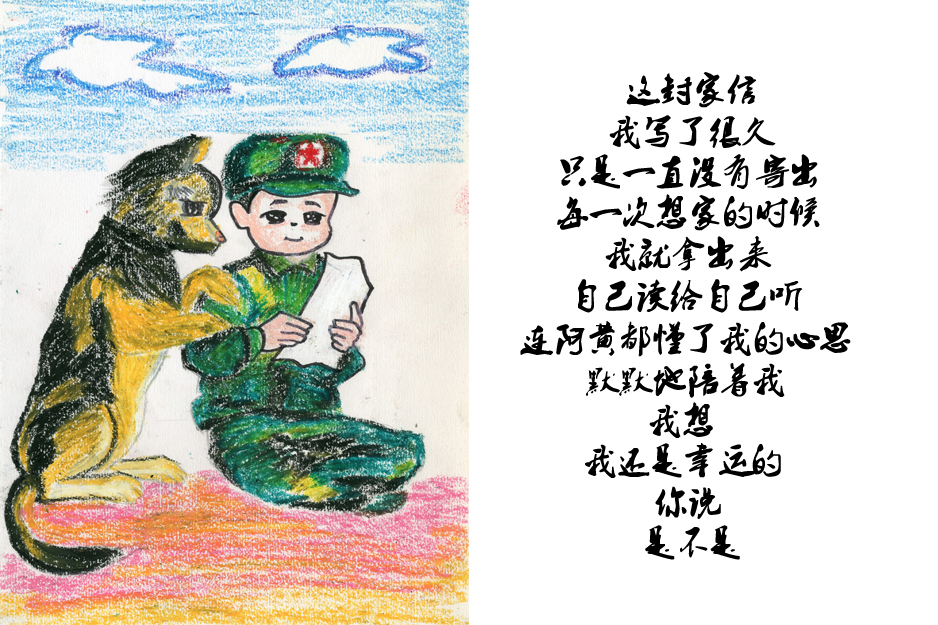 这封家信
我写了很久
只是一直没有寄出
每一次想家的时候
我就拿出来
自己读给自己听
连阿黄都懂了我的心思
默默地陪着我
我想
我还是幸运的
你说
是不是